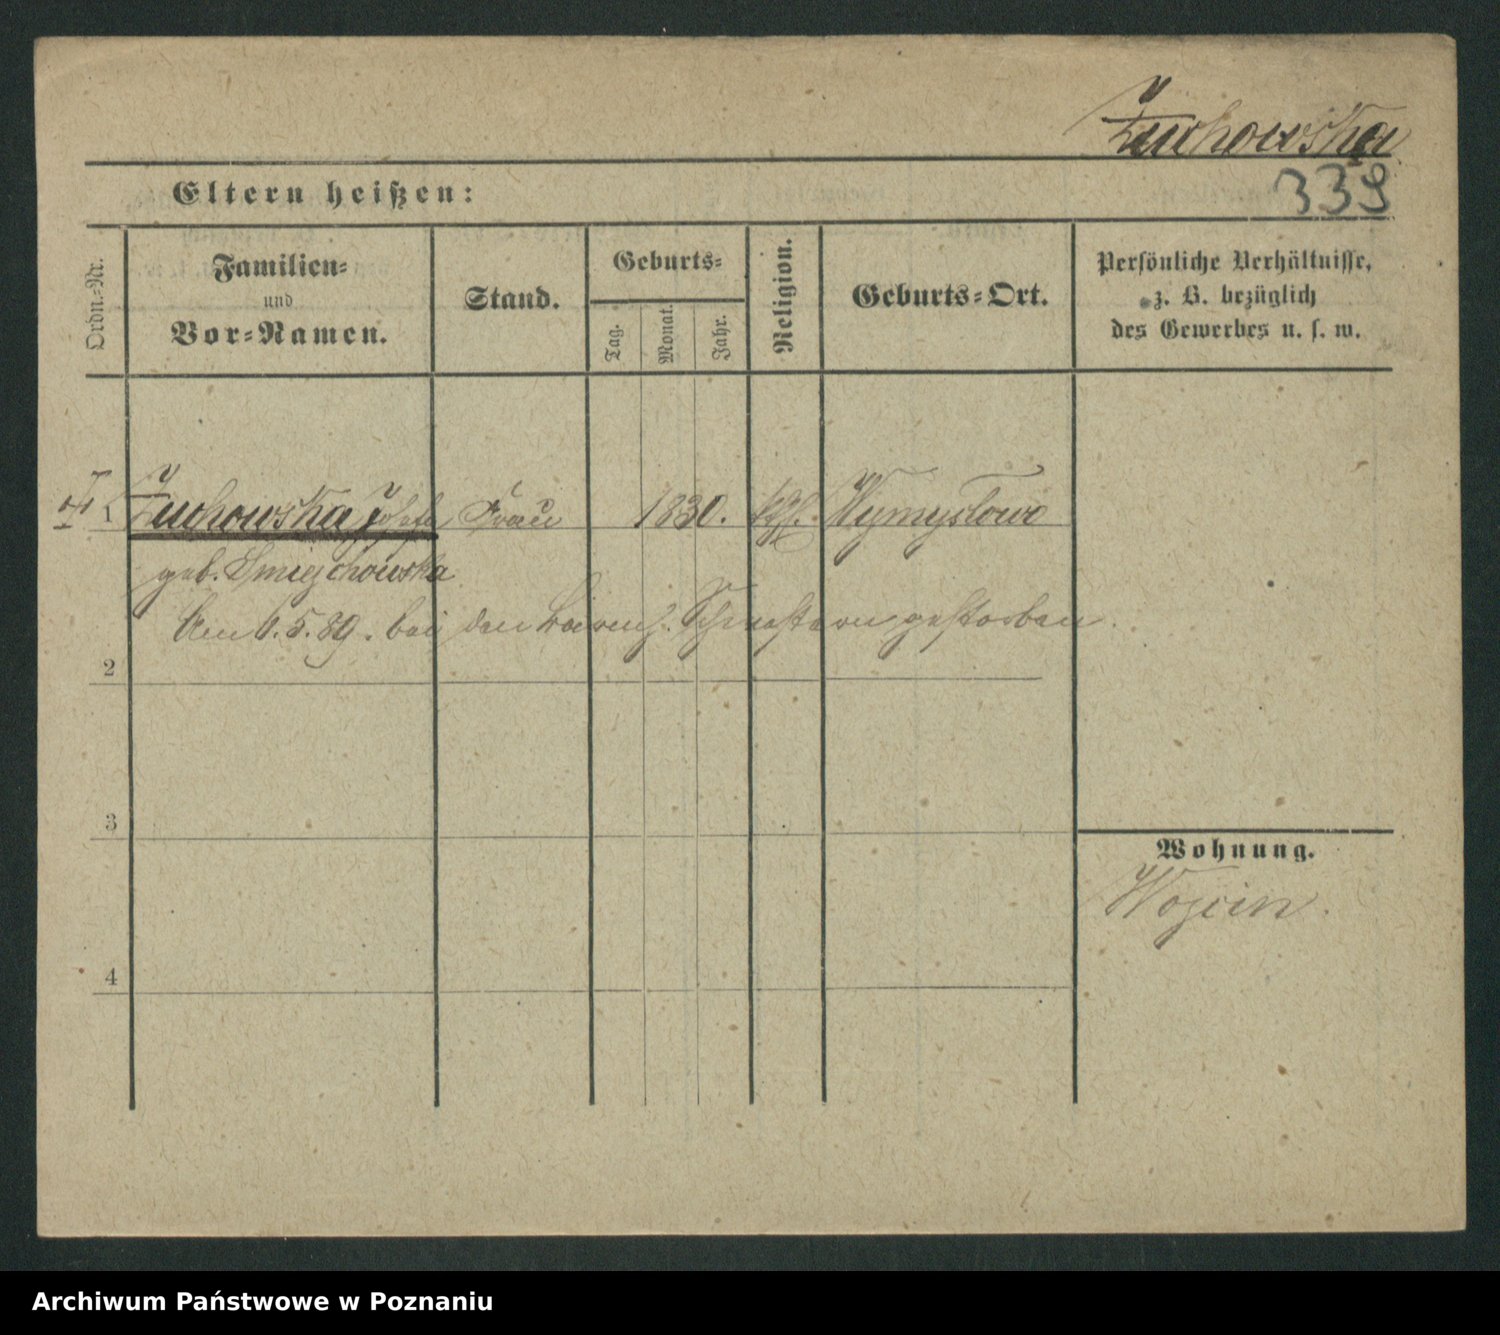 Żuchowska
339
Eltern heißen:
Ordn.-Nr.
Familien-
und
Vor-Namen.
Stand.
Geburts-
Tag.
Monat.
Jahr.
Religion.
Geburts-Ort.
Persönliche Verhältnisse,
z. B. bezüglich
des Gewerbes u. s. w.
1 Żuchowska Josefa Frau 1830. kath. Wymysłowo
geb. Smiejchowska
Am 6.5.89. bei den barmh. Schwestern gestorben.
2
3
Wohnung.
Wojcin.
4
Archiwum Państwowe w Poznaniu